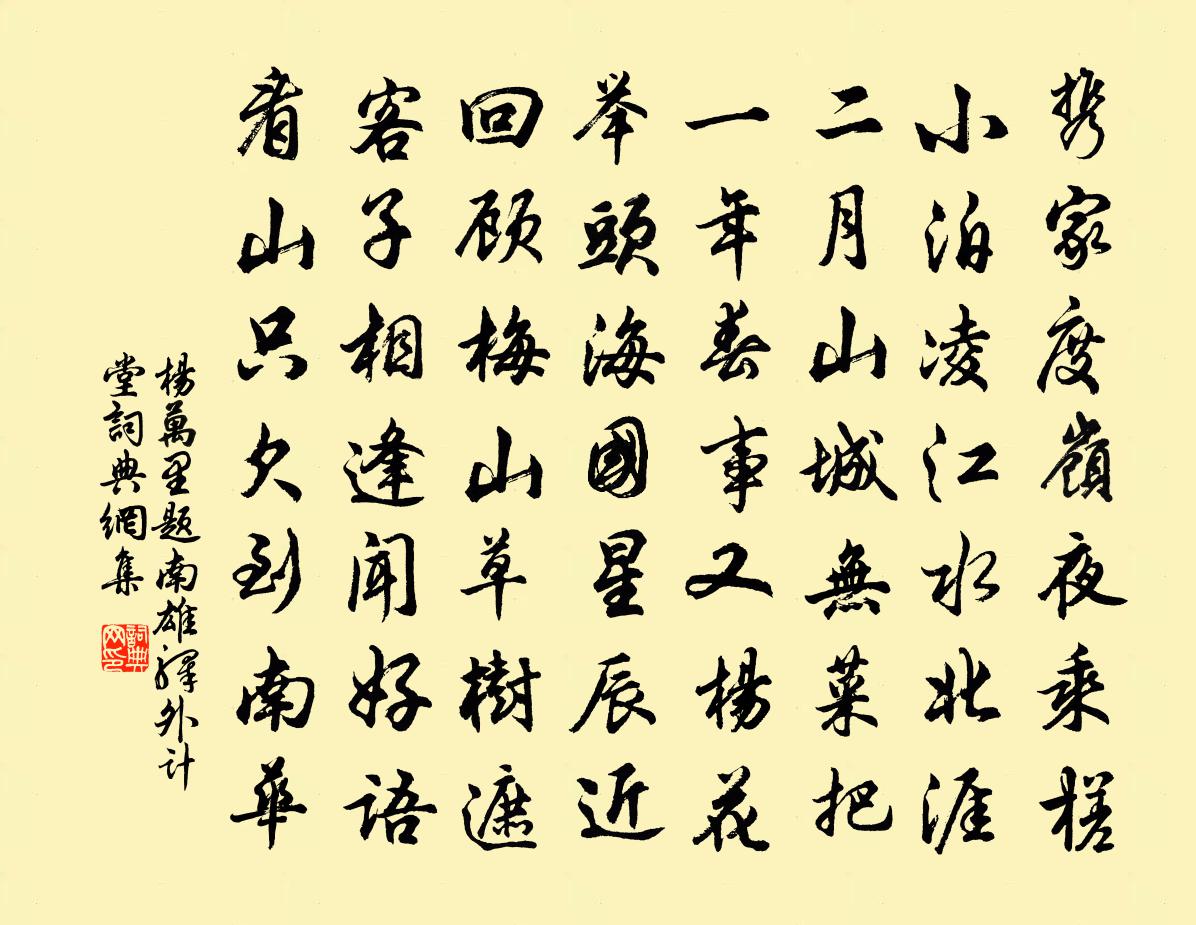 携家度嶺夜乘槎
小泊凌江水北涯
二月山城無菜把
一年春事又楊花
举頭海國星辰近
回顾梅山草樹遮
客子相逢聞好語
看山只欠到南華
楊萬里題南雄驛外計
堂詞典網集
詞典
网印